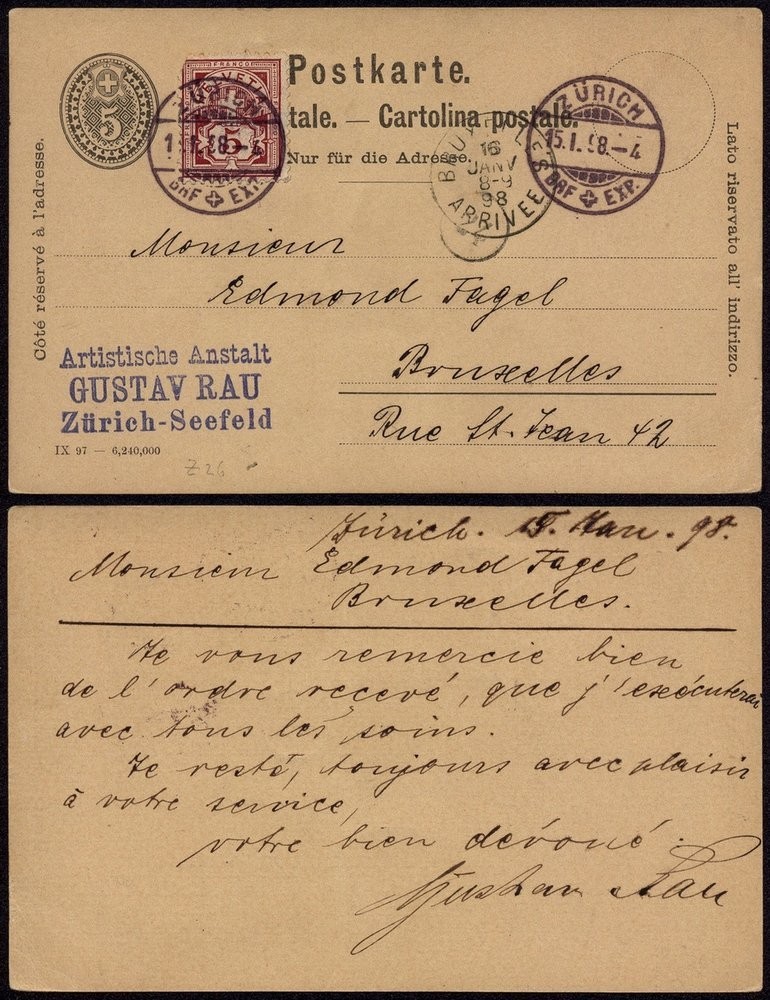 Postkarte.
tale. — Cartolina postale.
Nur für die Adresse.
5
FRANCO
HELVETIA
5
ZÜRICH
15.I.98.–4
BRF EXP.
ZÜRICH
15.I.98.–4
BRF EXP.
16
JANV
8-9
98
ARRIVEE
Côté réservé à l'adresse.
Lato riservato all' indirizzo.
Monsieur
Edmond Fagel
Bruxelles
Rue St. Jean 42
Artistische Anstalt
GUSTAV RAU
Zürich-Seefeld
IX 97 — 6,240,000
Z 26
Zürich. 15. Jan. 98.
Monsieur Edmond Fagel
Bruxelles.
Je vous remercie bien
de l'ordre recevé, que j'exécuterai
avec tous les soins.
Je resté, toujours avec plaisir
à votre service,
votre bien dévoué.
Gustav Rau